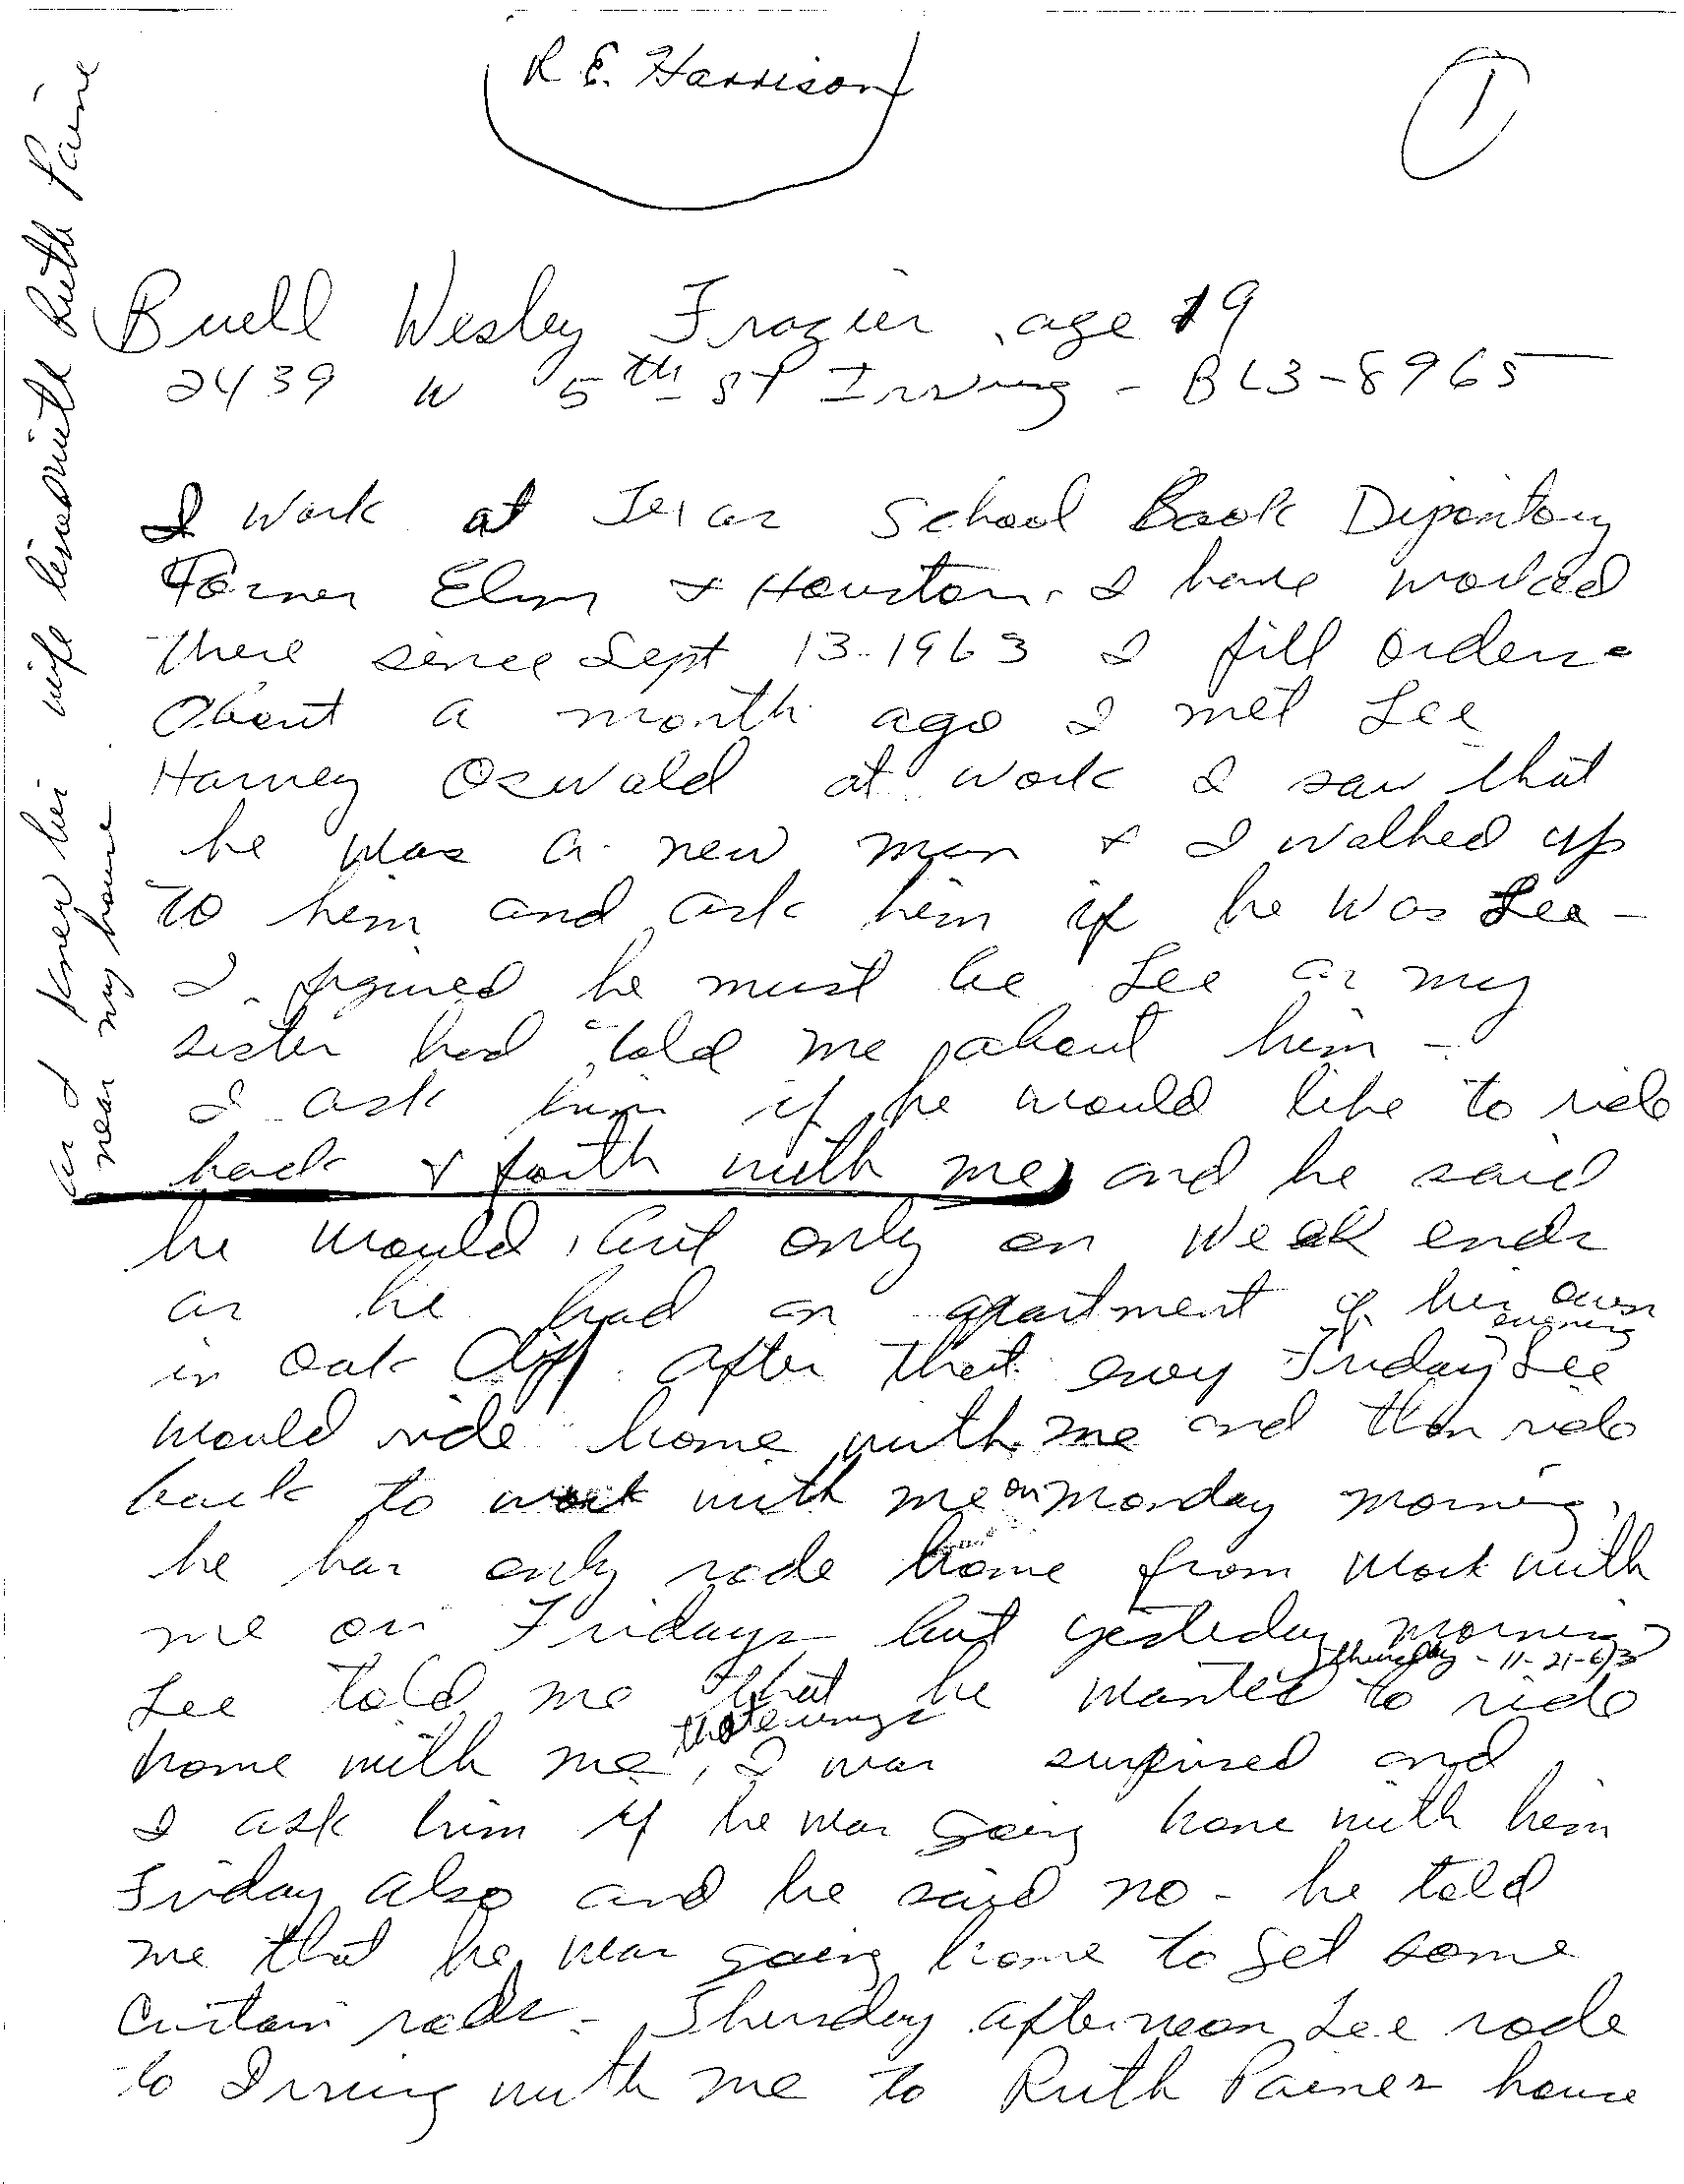 R. E. Harrison
1
Buell Wesley Frazier, age 19
2439 W 5th St Irving - BL3-8965
I work at Texas School Book Dipository
Corner Elm & Houston. I have worked
there since Sept 13-1963 I fill orders.
About a month ago I met Lee
Harvey Oswald at work I saw that
he was a new man & I walked up
to him and ask him if he was Lee -
I figured he must be Lee as my
sister had told me about him -
I ask him if he would like to ride
back & forth with me, and he said
as I knew his wife lives with Ruth Paine
near my house
he would, but only on week ends
as he had an apartment of his own
in Oak Cliff. After that every Friday evening Lee
would ride home with me and then ride
back to work with me on Monday morning,
he has only rode home from work with
me on Fridays but yesteday morning
Thursday - 11-21-63
Lee told me that he wanted to ride
home with me that evening, I was surprised and
I ask him if he was going home with him
Friday also and he said no - he told
me that he was going home to get some
Curtain rods - Thursday afternoon Lee rode
to Irving with me to Ruth Paines house